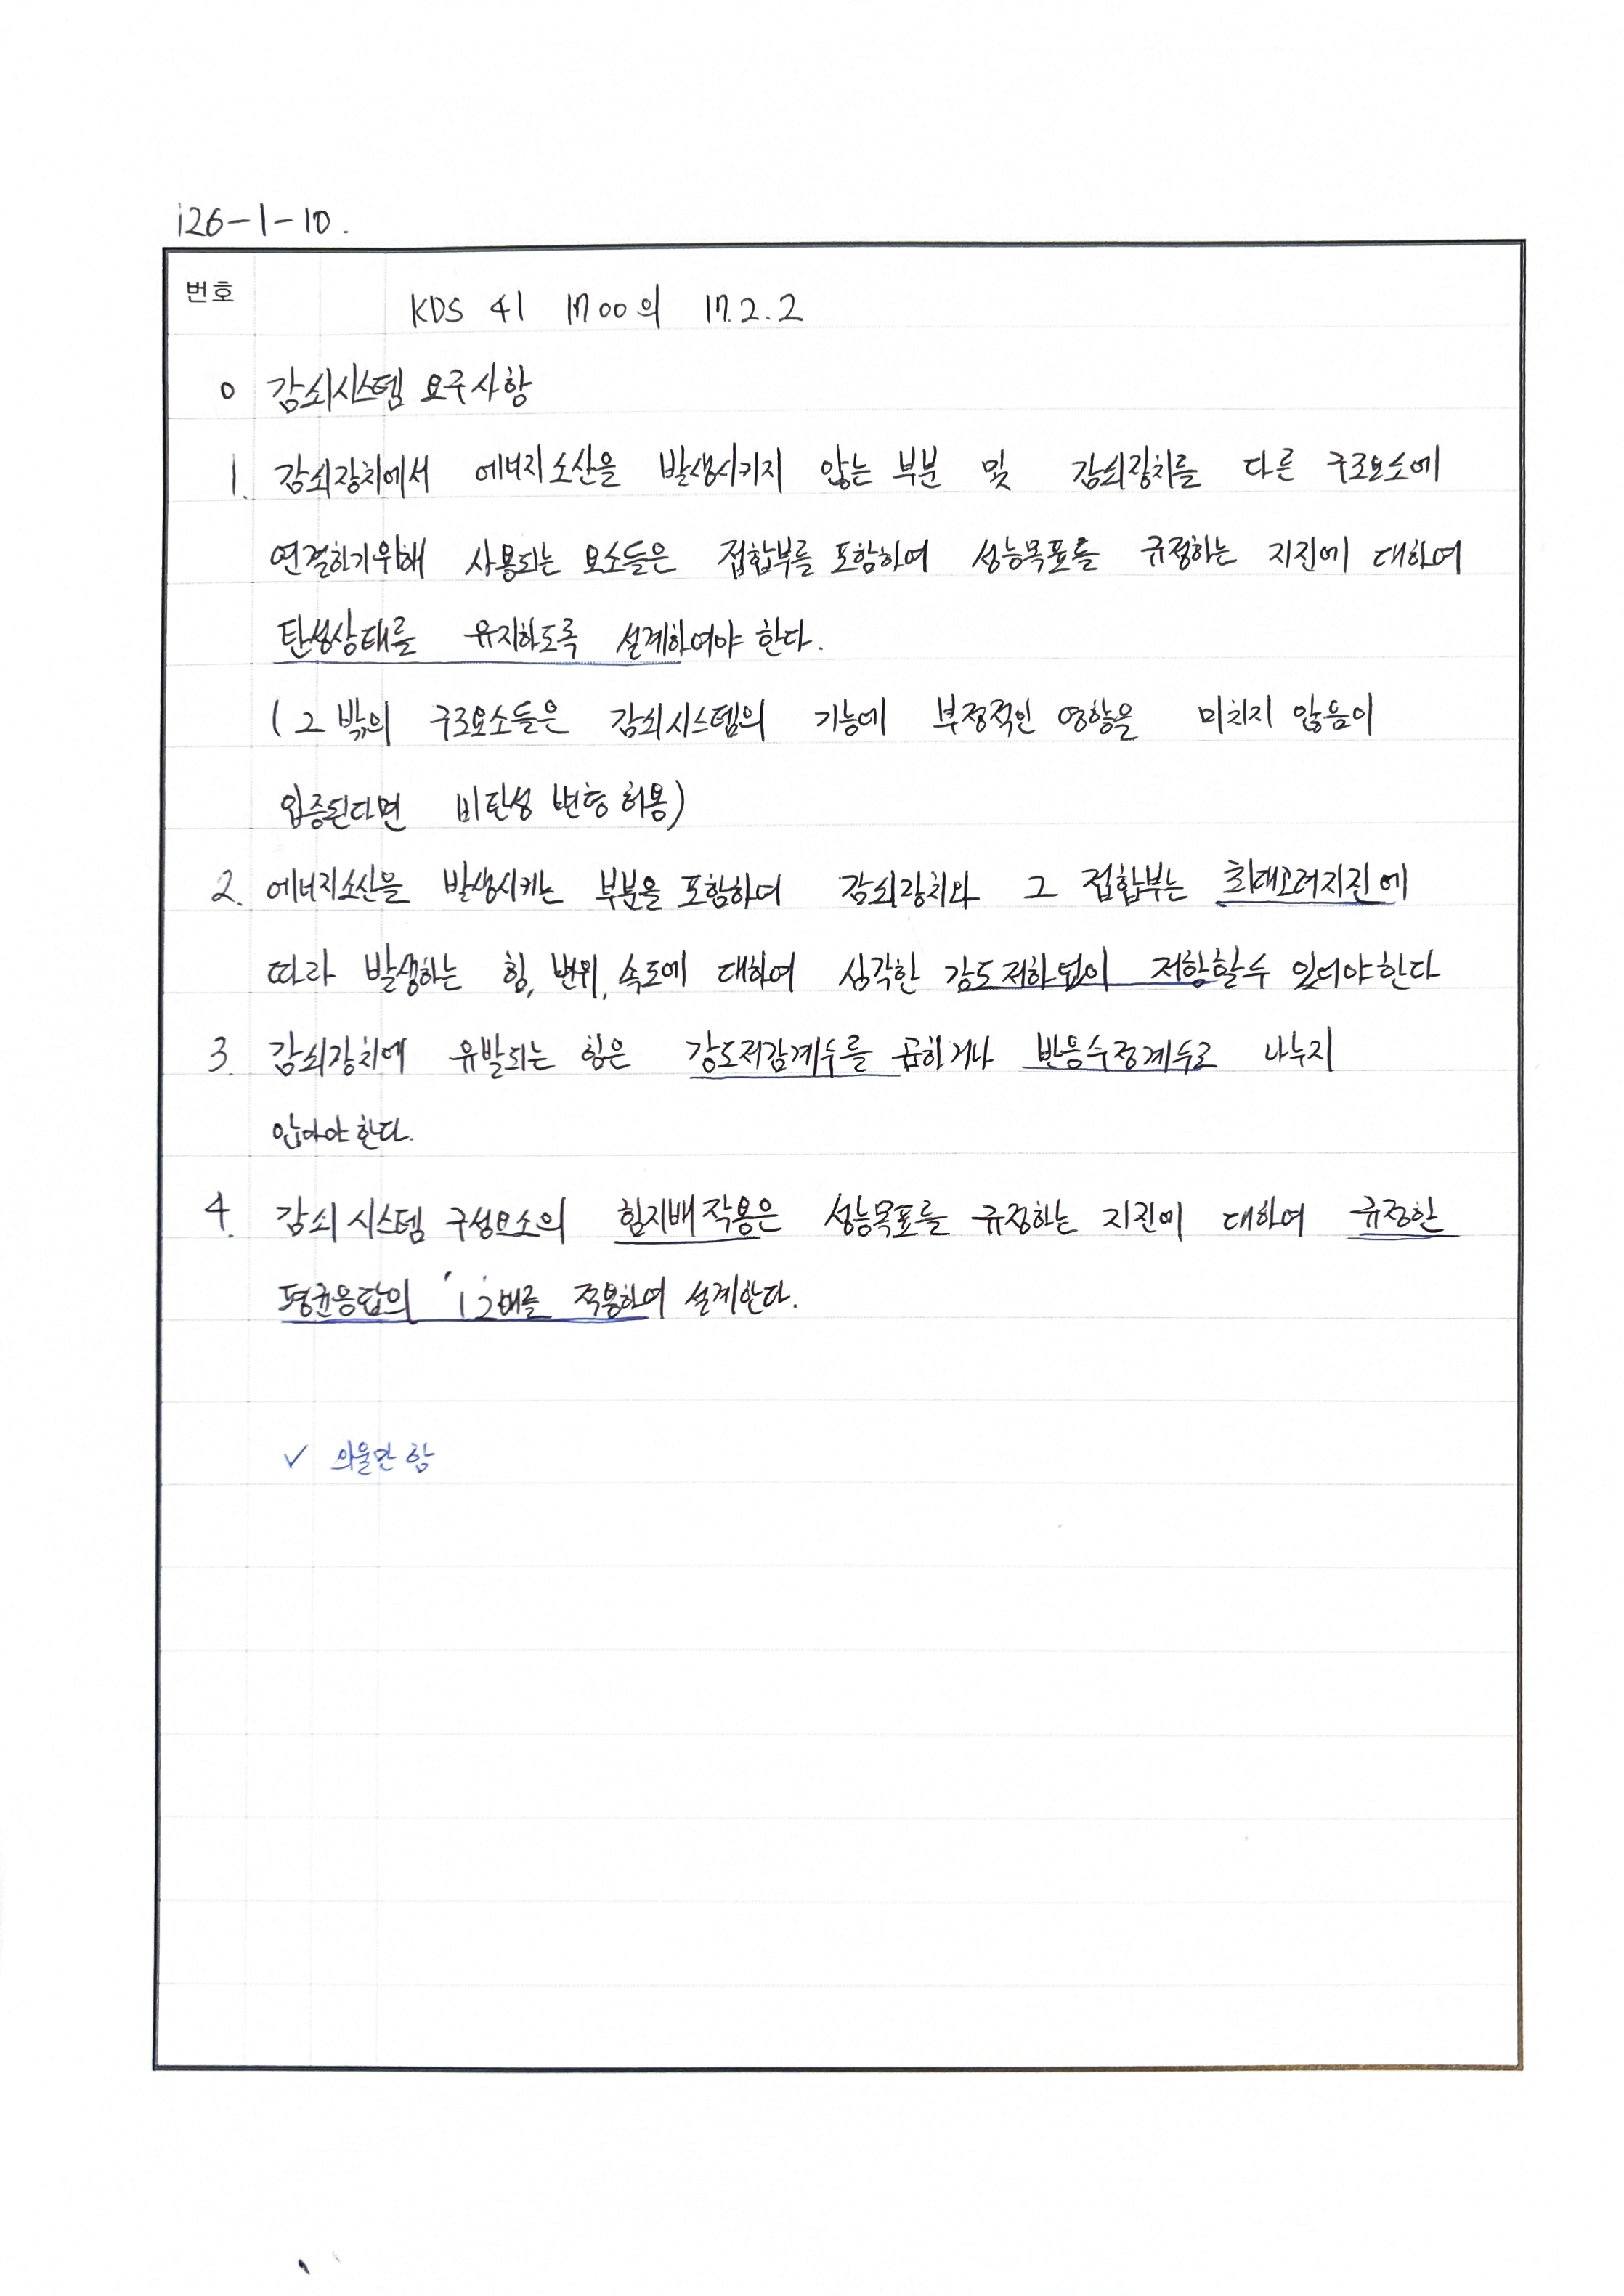 126-1-10.
번호
KDS 41 17 00의 17.2.2
o 감쇠시스템 요구사항
1. 감쇠장치에서 에너지소산을 발생시키지 않는 부분 및 감쇠장치를 다른 구조요소에
연결하기위해 사용되는 요소들은 접합부를 포함하여 성능목표를 규정하는 지진에 대하여
탄성상태를 유지하도록 설계하여야 한다.
(그 밖의 구조요소들은 감쇠시스템의 기능에 부정적인 영향을 미치지 않음이
입증된다면 비탄성 변형 허용)
2. 에너지소산을 발생시키는 부분을 포함하여 감쇠장치와 그 접합부는 최대고려지진에
따라 발생하는 힘, 변위, 속도에 대하여 심각한 강도저하없이 저항할수 있어야한다
3. 감쇠장치에 유발되는 힘은 강도저감계수를 곱하거나 반응수정계수로 나누지
않아야한다.
4. 감쇠시스템 구성요소의 힘지배작용은 성능목표를 규정하는 지진에 대하여 규정한
평균응답의 1.2배를 적용하여 설계한다.
✓ 외울만 함